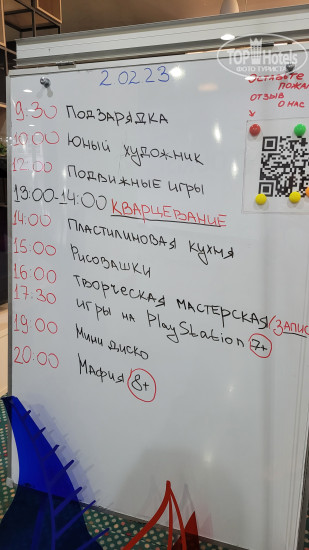 TOPHotels
ФОТО ТУРИСТА
2 0 2 2 3
Оставьте
пожал
отзыв
о нас
9:30 Подзарядка
10:00 Юный художник
12:00 Подвижные игры
13:00-14:00 Кварцевание
14:00 Пластилиновая кухня
15:00 Рисовашки
16:00 Творческая мастерская/запис
17:30 игры на PlayStation 7+
19:00 Мини диско
20:00 Мафия 8+